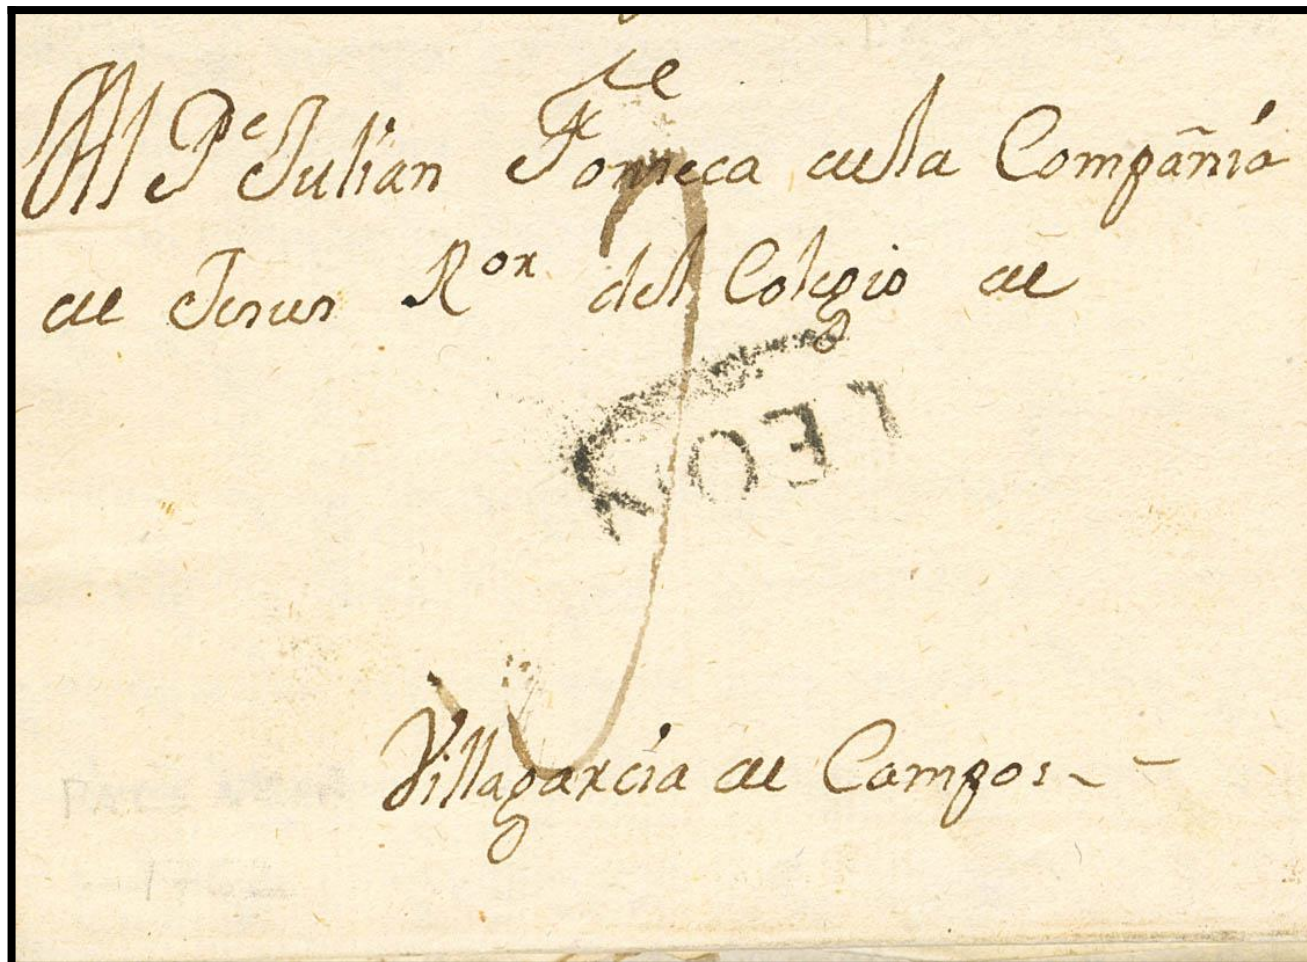 Al Pe Julian Fonseca de la Compañia
de Jesus Ror del Colegio de
LEON
Villagarcia de Campos